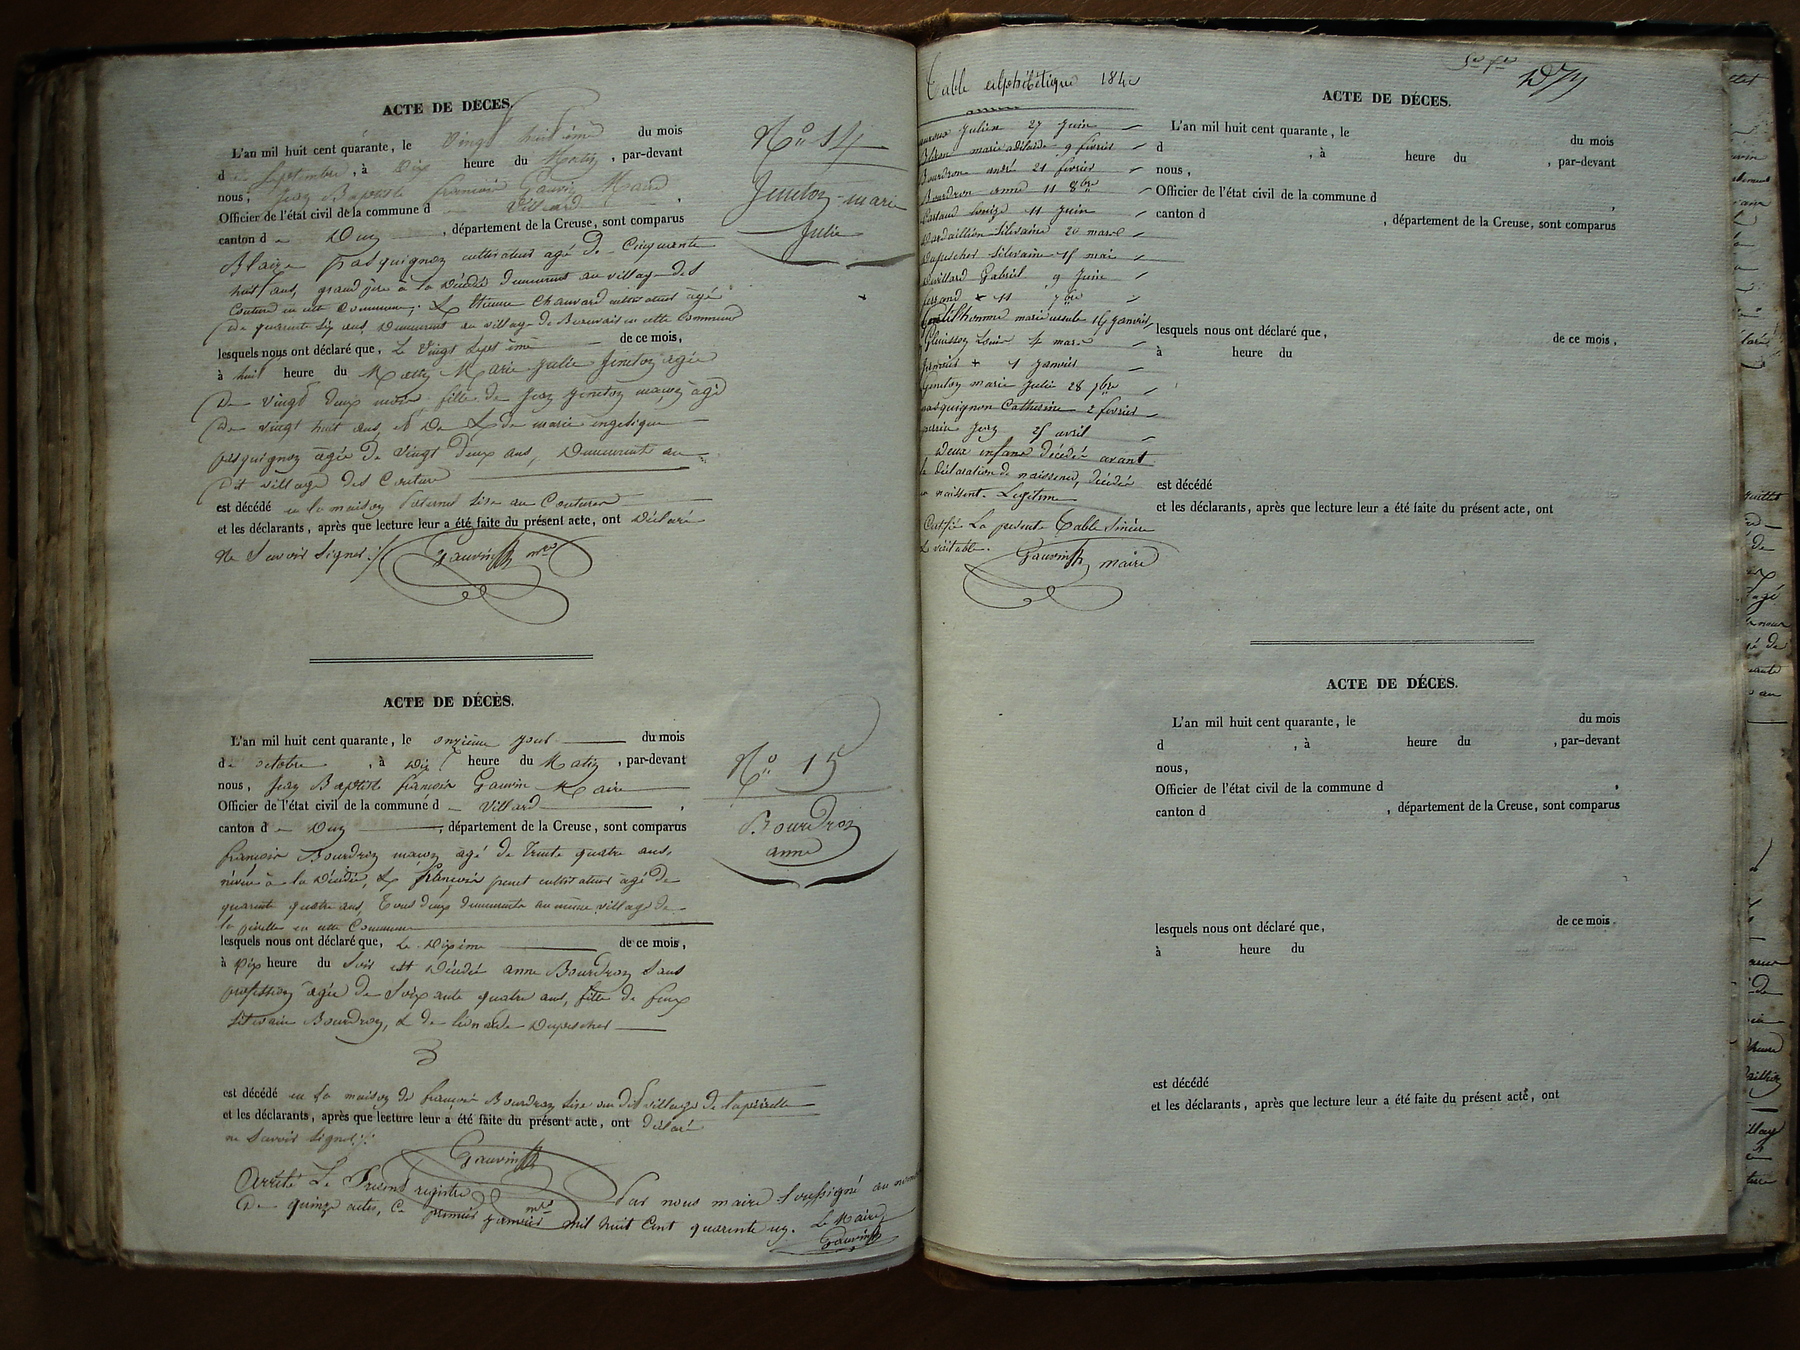 ACTE DE DÉCES.
L'an mil huit cent quarante, le Vingt huitième du mois
de Septembre, à Dix heure du Matin, par-devant
nous, Jean Baptiste françois Gauvin Maire
Officier de l'état civil de la commune d Villard,
canton de Dun, département de la Creuse, sont comparus
Blaize pasquignon cultivateur agé de Cinquante
huit ans, grand père à la décédée demeurant au village des
Couture en cette Commune; & Etienne Chauvard cultivateur agé
de quarante six ans demeurant au village de Beauvais en cette Commune
lesquels nous ont déclaré que, Le Vingt Sept ème de ce mois,
à huit heure du Matin Marie Julie Jeneton agée
de vingt deux mois, fille de Jean Jeneton maçon agé
de vingt huit ans, et de & de marie angelique
pasquignon agée de vingt deux ans, Demeurant au
dit village des Couture
est décédé en la maison Paternel sise au Couture
et les déclarants, après que lecture leur a été faite du présent acte, ont déclaré
Ne Savoir Signer
Gauvin mre
No 14
Jeneton marie
Julie
ACTE DE DÉCÈS.
L'an mil huit cent quarante, le onzième jour du mois
de octobre, à Dix heure du Matin, par-devant
nous, Jean Baptiste françois Gauvin Maire
Officier de l'état civil de la commune d Villard,
canton de Dun, département de la Creuse, sont comparus
françois Bourdron maçon agé de Trente quatre ans,
neveu à la Décédée, & françois penot cultivateur agé de
quarente quatre ans, Tous deux demeurants au même village de
la pérelle en cette Commune
lesquels nous ont déclaré que, Le Dixième de ce mois,
à Dix heure du Soir est Décédée anne Bourdron Sans
profession agée de Soixante quatre ans, fille de feux
Silvain Bourdron, & de léonarde Dupeschet
est décédé en la maison de françois Bourdron Sise au dit village de Lapérelle
et les déclarants, après que lecture leur a été faite du présent acte, ont déclaré
ne Savoir Signer
Gauvin
mre
No 15
Bourdron
anne
Arrêté Le Présent registre Par nous maire Soussigné au nombre
De quinze actes, Ce premier janvier mil huit Cent quarente un. Le Maire
Gauvin
Table alphabétique 1840
Julien 27 Juin
marie adelaide 9 février
Bourdron andré 21 février
Bourdron anne 11 8bre
Louize 11 Juin
Dardaillion Silvaine 20 mars
Dupeschet Silvaine 15 mai
Gabriel 9 Juin
+ 11 7bre
Gentilhomme marie ursule 16 janvier
Louis 4 mars
+ 1 janvier
Jeneton marie Julie 28 7bre
pasquignon Catherine 2 février
Jean 25 avril
deux enfans décédés avant
la déclaration de naissance, décédés
en naissent. Legitime
Certifié La presente Table Sincere
& véritable.
Gauvin maire
ACTE DE DÉCES.
L'an mil huit cent quarante, le du mois
d , à heure du , par-devant
nous,
Officier de l'état civil de la commune d ,
canton d , département de la Creuse, sont comparus
lesquels nous ont déclaré que, de ce mois,
à heure du
est décédé
et les déclarants, après que lecture leur a été faite du présent acte, ont
ACTE DE DÉCES.
L'an mil huit cent quarante, le du mois
d , à heure du , par-devant
nous,
Officier de l'état civil de la commune d
canton d , département de la Creuse, sont comparus
lesquels nous ont déclaré que, de ce mois.
à heure du
est décédé
et les déclarants, après que lecture leur a été faite du présent acte, ont